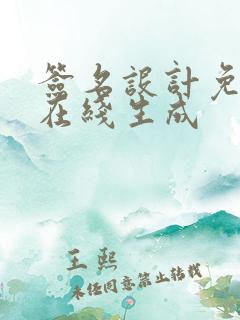 簽名設計免
在綫生成
王熙
未经同意禁止转载